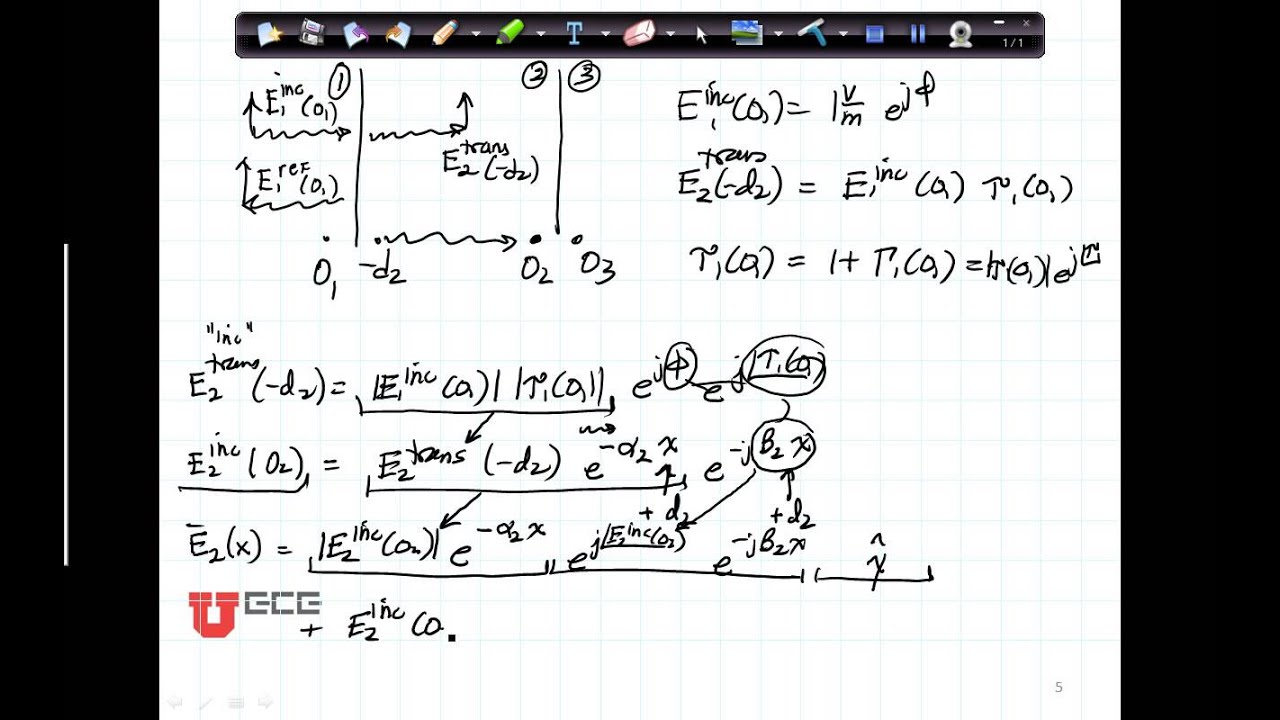 1/1
① ② ③
E₁ⁱⁿᶜ(0₁)
E₁ʳᵉᶠ(0₁)
E₂ᵗʳᵃⁿˢ(-d₂)
0₁ -d₂ 0₂ 0₃
E₁ⁱⁿᶜ(0₁) = 1 V/m e^{jϕ}
E₂ᵗʳᵃⁿˢ(-d₂) = E₁ⁱⁿᶜ(0₁) τ₁(0₁)
τ₁(0₁) = 1 + Γ₁(0₁) = |τ₁(0₁)| e^{j∠τ}
"inc"
E₂ᵗʳᵃⁿˢ(-d₂) = |E₁ⁱⁿᶜ(0₁)| |τ₁(0₁)| e^{jϕ} e^{j∠τ₁(0₁)}
E₂ⁱⁿᶜ(0₂) = E₂ᵗʳᵃⁿˢ(-d₂) e^{-α₂x} e^{-jβ₂x}
+d₂ +d₂
E₂(x) = |E₂ⁱⁿᶜ(0₂)| e^{-α₂x} e^{j∠E₂ⁱⁿᶜ(0₂)} e^{-jβ₂x} ŷ
U ECE
+ E₂ⁱⁿᶜ(0
5